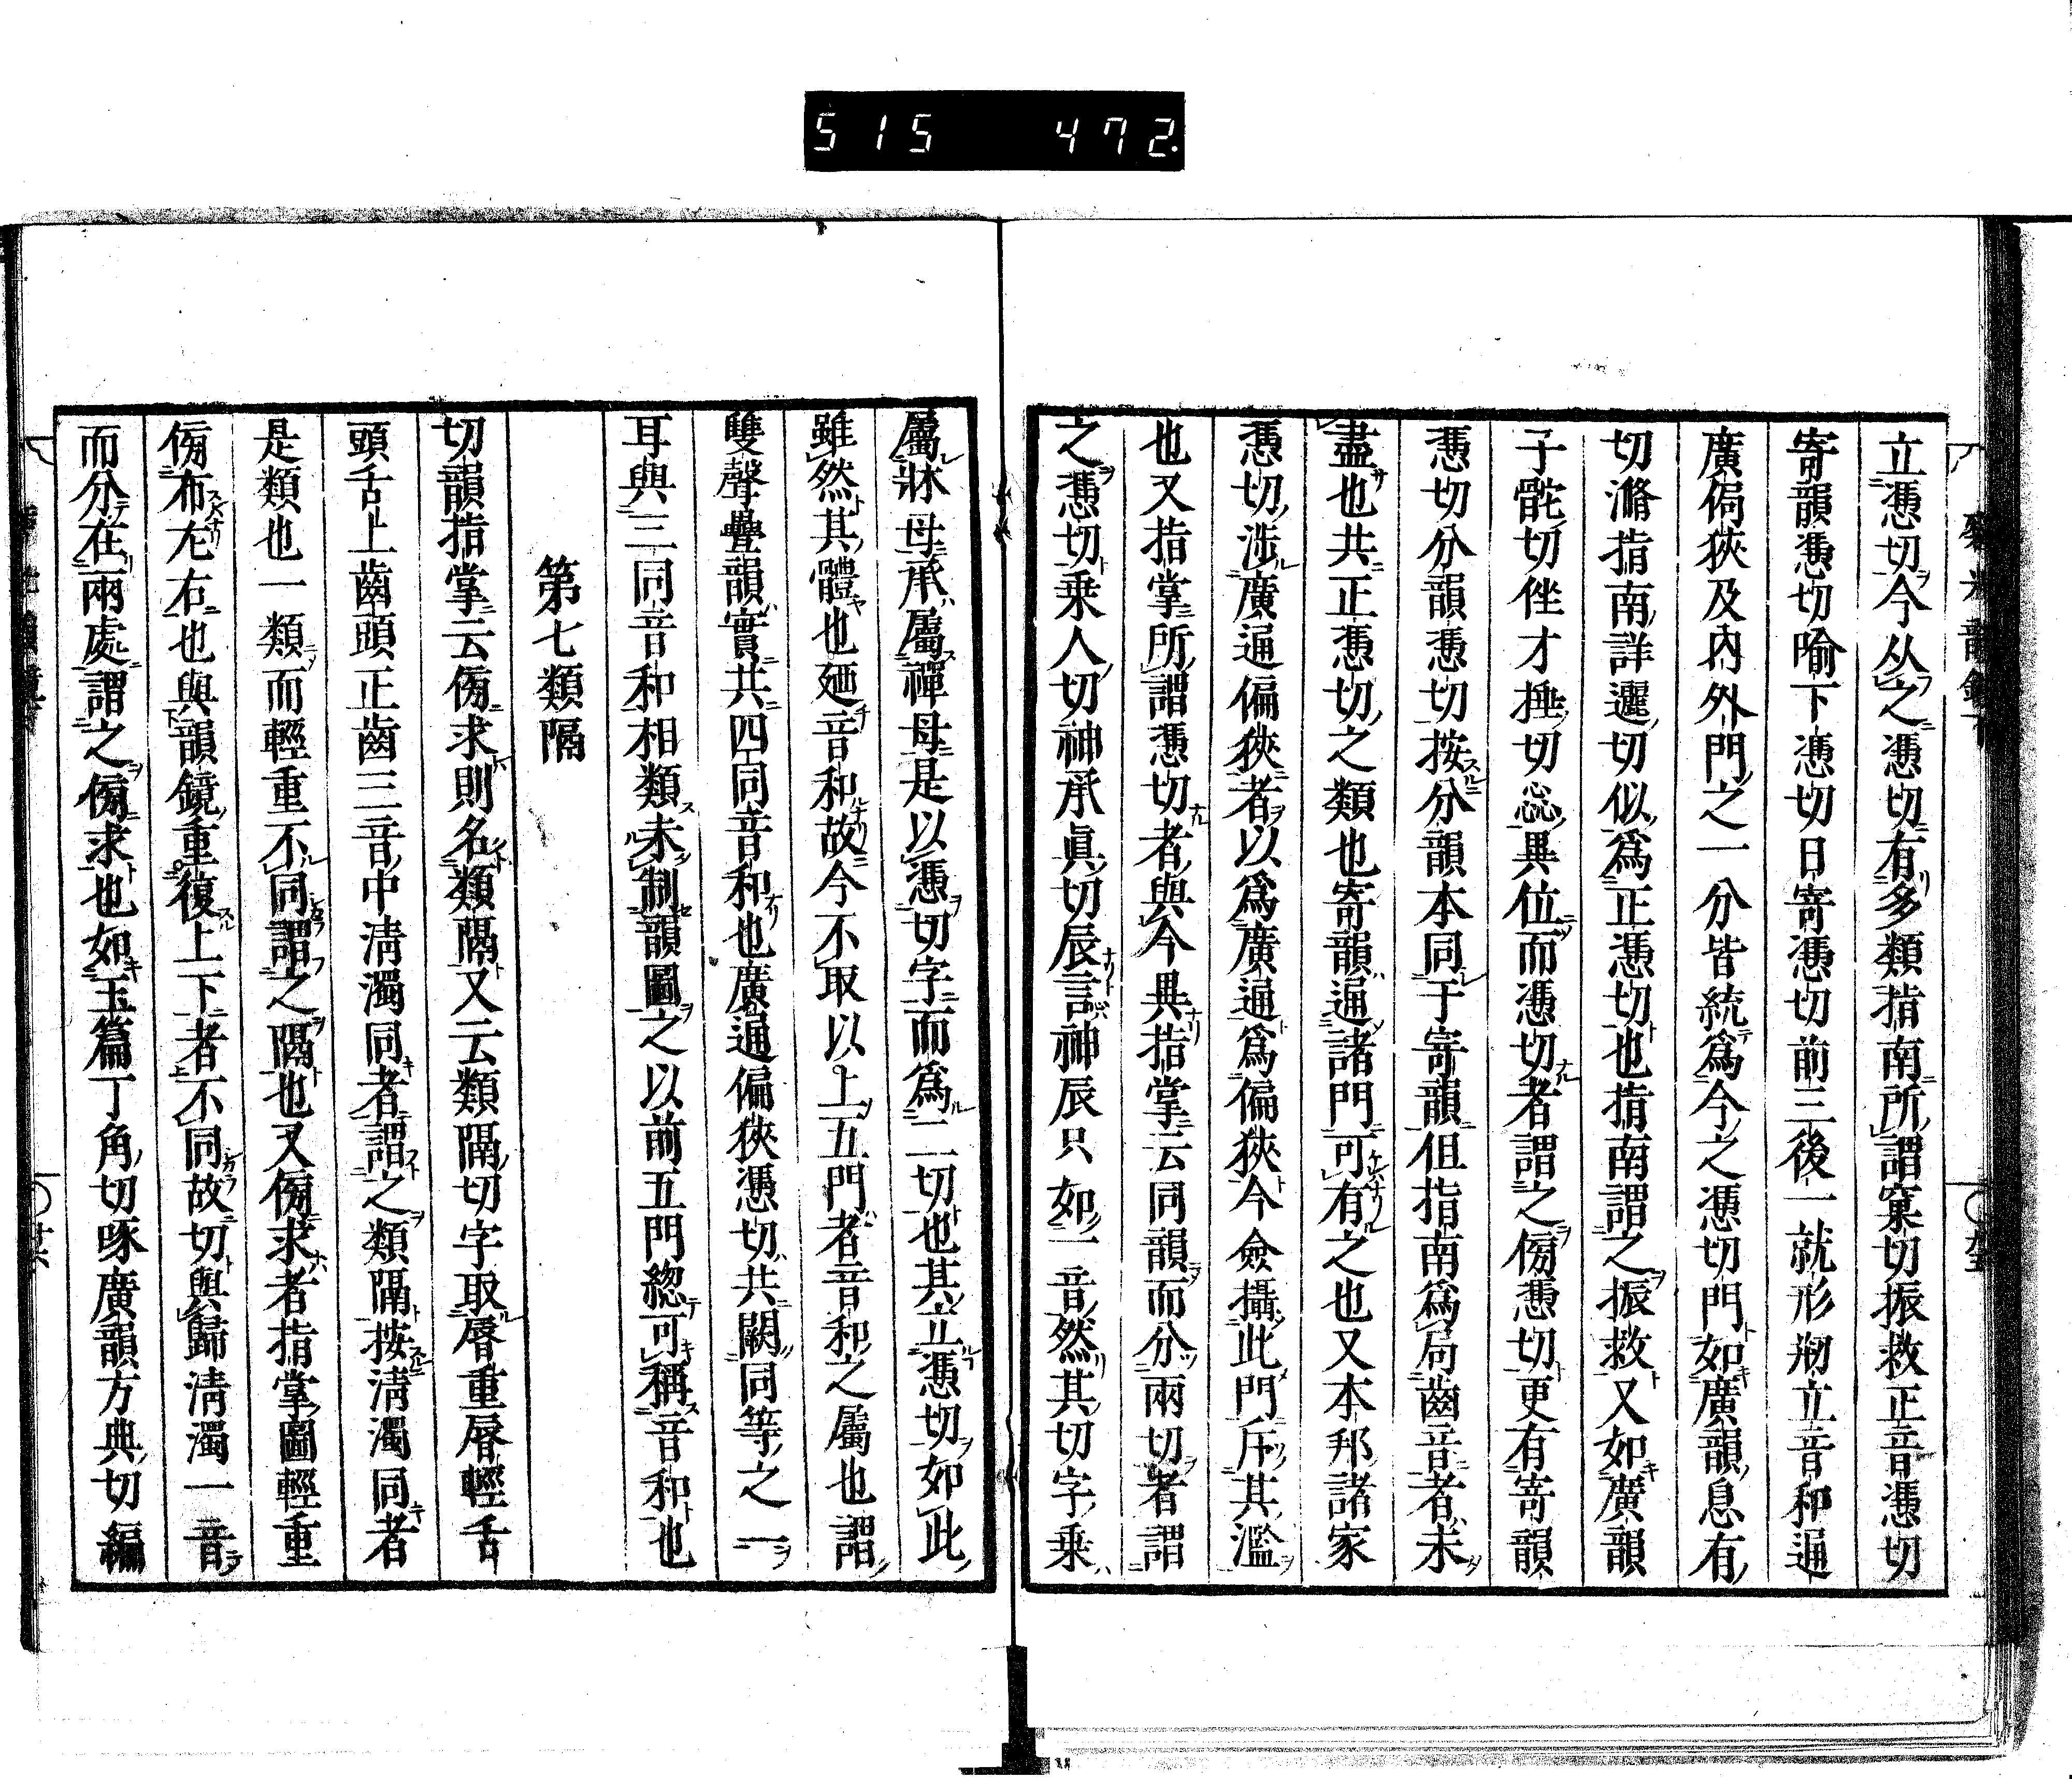 515 472.
立憑切今从之憑切有多類指南所謂窠切振救正音憑切
寄韻憑切喻下憑切日寄憑切前三後一就形剏立音和通
廣偏狹及內外門之一分皆統爲今之憑切門如廣韻息有
切滫指南詳邐切似爲正憑切也指南謂之振救又如廣韻
子䯝切侳才捶切惢異位而憑切者謂之傍憑切更有寄韻
憑切分韻憑切按分韻本同于寄韻但指南爲局齒音者未
盡也共正憑切之類也寄韻通諸門可有之也又本邦諸家
憑切涉廣通偏狹者以爲廣通爲偏狹今僉攝此門斥其濫
也又指掌所謂憑切者與今異指掌云同韻而分兩切者謂
之憑切乗人切神承眞切辰言神辰只如一音然其切字乗
屬牀母承屬禪母是以憑切字而爲二切也其立憑切如此
雖然其體也廼音和故今不取以上五門者音和之屬也謂
雙聲疊韻實共四同音和也廣通偏狹憑切共闕同等之一
耳與三同音和相類未制韻圖之以前五門総可稱音和也
第七類隔
切韻指掌云傍求則名類隔又云類隔切字取脣重脣輕舌
頭舌上齒頭正齒三音中淸濁同者謂之類隔按淸濁同者
是類也一類而輕重不同謂之隔也又傍求者指掌圖輕重
傍布左右也與韻鏡重復上下者不同故切與歸淸濁一音
而分在兩處謂之傍求也如玉篇丁角切啄廣韻方典切編